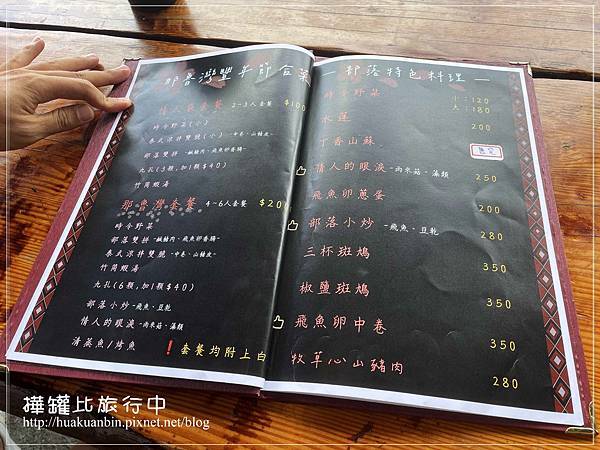 那魯灣豐年節合菜
情人袋套餐 2-3人套餐 $100
時令野菜(小)
泰式涼拌雙號(小) -中卷、山豬皮-
部落雙拼 -鹹豬肉、飛魚卵香腸-
九孔(3顆,加1顆$40)
竹筒蝦湯
那魯灣套餐 4-6人套餐 $20
時令野菜
部落雙拼 -鹹豬肉、飛魚卵香腸-
泰式涼拌雙號 -中卷、山豬皮-
竹筒蝦湯
九孔(6顆,加1顆$40)
部落小炒 -飛魚、豆乾
情人的眼淚 -雨來菇、藻類
清蒸魚/烤魚
! 套餐均附上白
— 部落特色料理 —
時令野菜 小:120
大:180
水蓮 200
丁香山蘇 售完
情人的眼淚 -雨來菇、藻類 250
飛魚卵蔥蛋 200
部落小炒 -飛魚、豆乾 280
三杯斑鳩 350
椒鹽斑鳩 350
飛魚卵中卷 350
牧草心山豬肉 280
樺罐比旅行中
http://huakuanbin.pixnet.net/blog